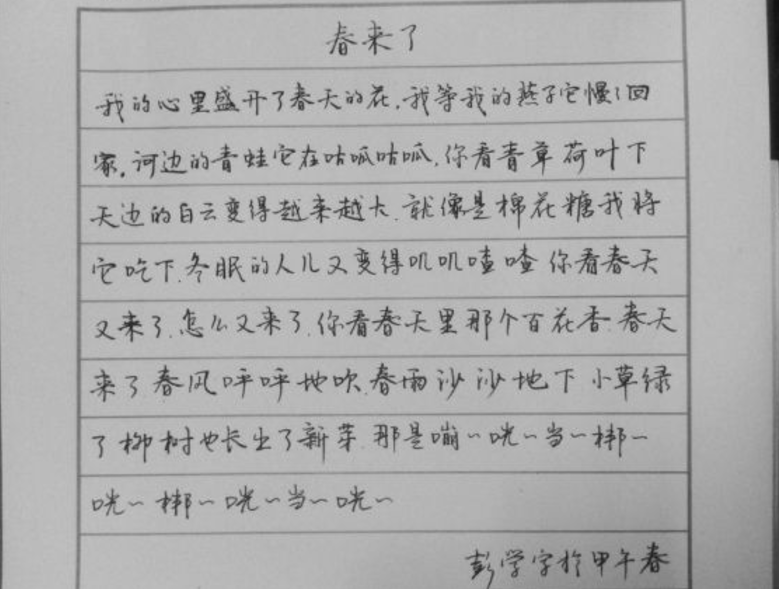 春来了
我的心里盛开了春天的花，我等我的燕子它慢慢回
家，河边的青蛙它在咕呱咕呱，你看青草荷叶下
天边的白云变得越来越大，就像是棉花糖我将
它吃下，冬眠的人儿又变得叽叽喳喳 你看春天
又来了，怎么又来了，你看春天里那个百花香，春天
来了春风呼呼地吹，春雨沙沙地下 小草绿
了柳树也长出了新芽，那是嘣～咣～当～梆～
咣～梆～咣～当～咣～
彭学字于甲午春